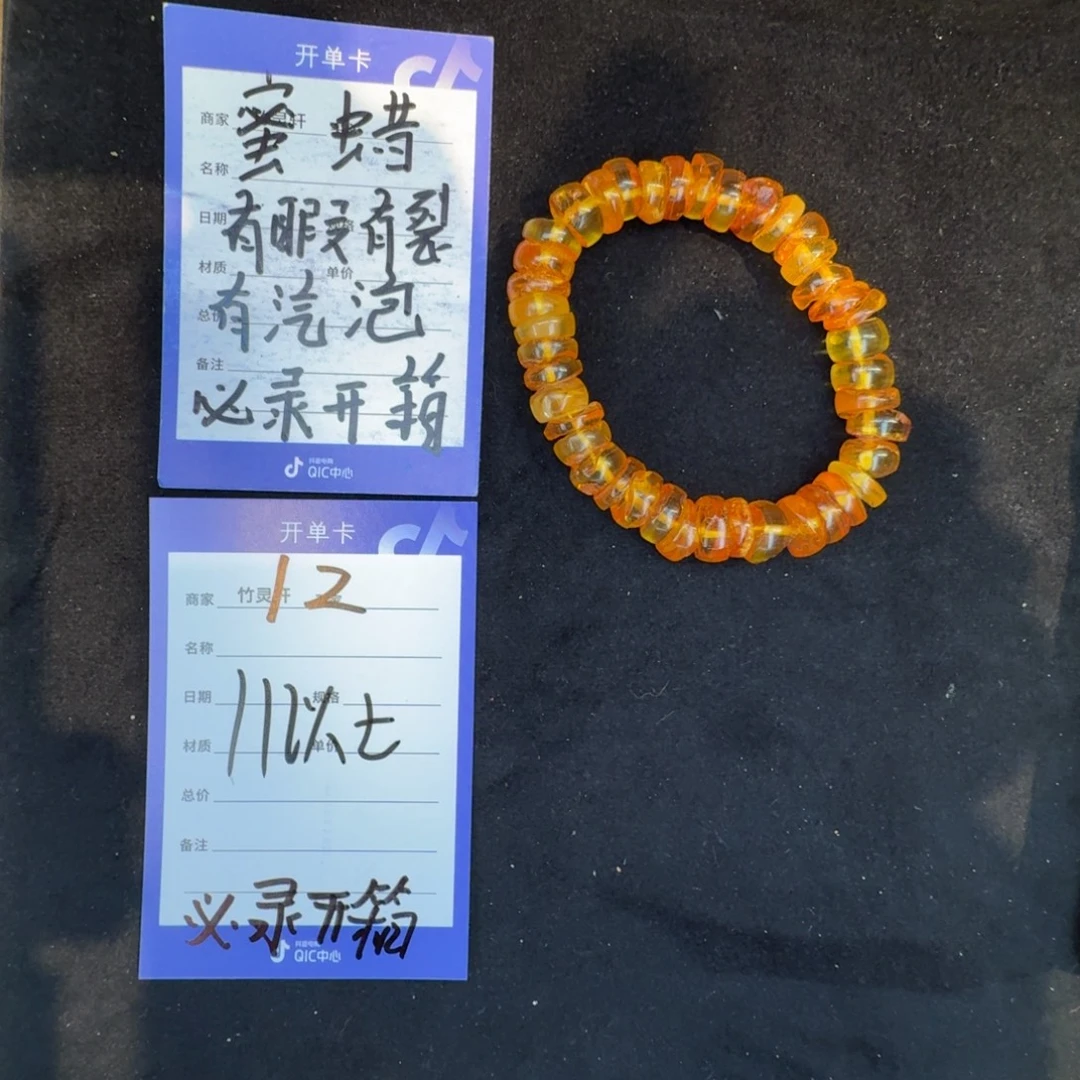 开单卡
商家
蜜蜡
名称
日期
有暇又有裂
材质 单价
总价
有汽泡
备注
必录开箱
抖音电商
QIC中心
开单卡
12
商家 竹灵轩
名称
日期 规格
11以上
材质 单价
总价
备注
必录开箱
抖音电商
QIC中心